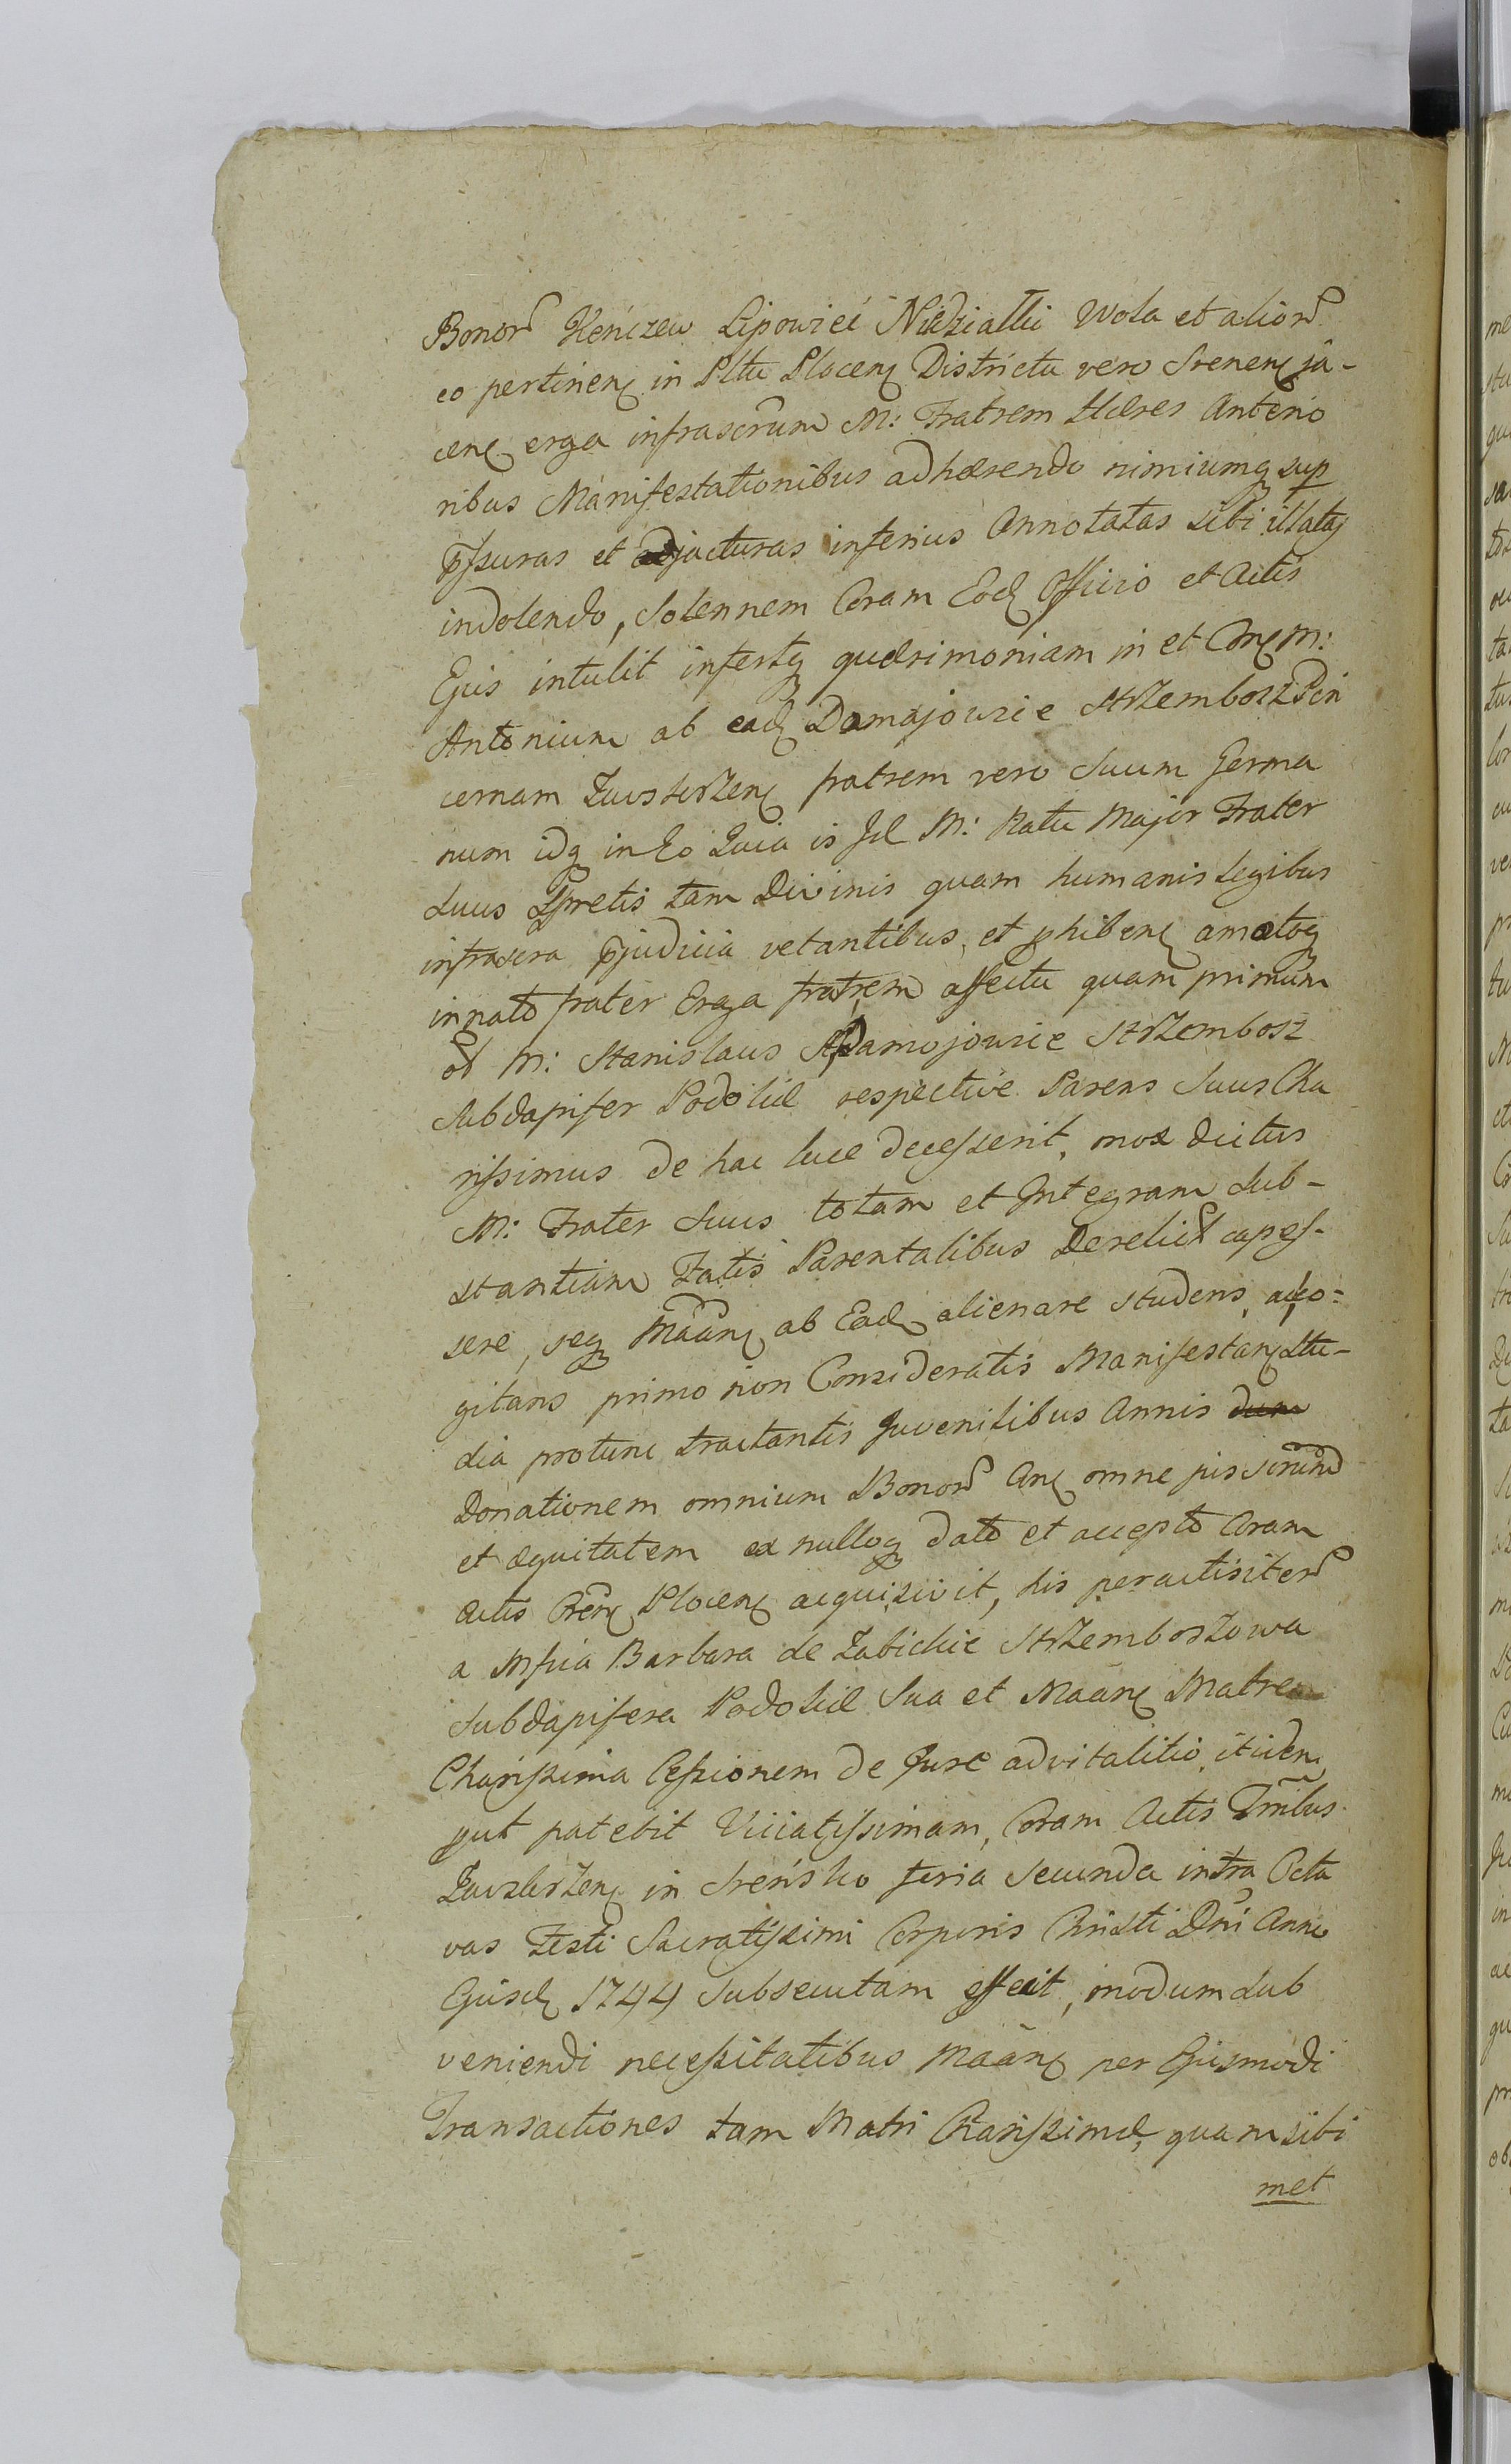 Bonor Kęnczew Lipowiec Niedziałki Wola et alior
eo pertinen in Pltu Plocen Districtu vero Srenen ja-
cen erga infrascrum M: Fratrem Hæres Anterio
ribus Manifestationibus adhærendo nimiumq sup
pssuras et jacturas inferius Annotatas sibi illatas
indolendo, Solennem Coram Eod Officio et Actis
Ejus intulit infertq quærimoniam in et Con M:
Antonium ab ead Damajowice Strzembosz Pin
cernam Zawskrzen fratrem vero Suum Germa
num idq in Eo Quia is Jd M: Natu Major Frater
Suus Spretis tam Divinis quam humanis Legibus
infrascra pjudicia vetantibus, et phiben amotoq
innato frater Erga fratrem affectu quam primum
M: Stanislaus Damojowice Strzembosz
Subdapifer Podoliæ respective Parens Suus Cha
rissimus de hac luce decesserit, mox dictus
M: Frater Suus totam et Integram Sub-
stantiam Fatis Parentalibus Derelict capes-
sere, seq Maan ab Ead alienare studens,
gitans primo non Consideratis Manifestan Stu-
dia protunc tractantis Juvenilibus Annis dum
Donationem omnium Bonor Con omne jus scrum
et æquitatem ex nulloq dato et accepto Coram
Actis Cren Plocen acquisivit, his peractis iter
a Mfica Barbara de Zabickie Strzemboszowa
Subdapifera Podoliæ Sua et Maan Matre
Charissima Cessionem de Jure advitalitio, itidem
put patebit Viciatissimam, Coram Actis Trrlbus
Zawskrzen in Sreńsko feria Secunda intra Octa
vas Festi Sacratissimi Corporis Christi Dni Anno
Ejusd 1744 Subsecutam effecit, modum Sub
veniendi necessitatibus Maan per Ejusmodi
Transactiones tam Matri Charissimæ, quam sibi
met